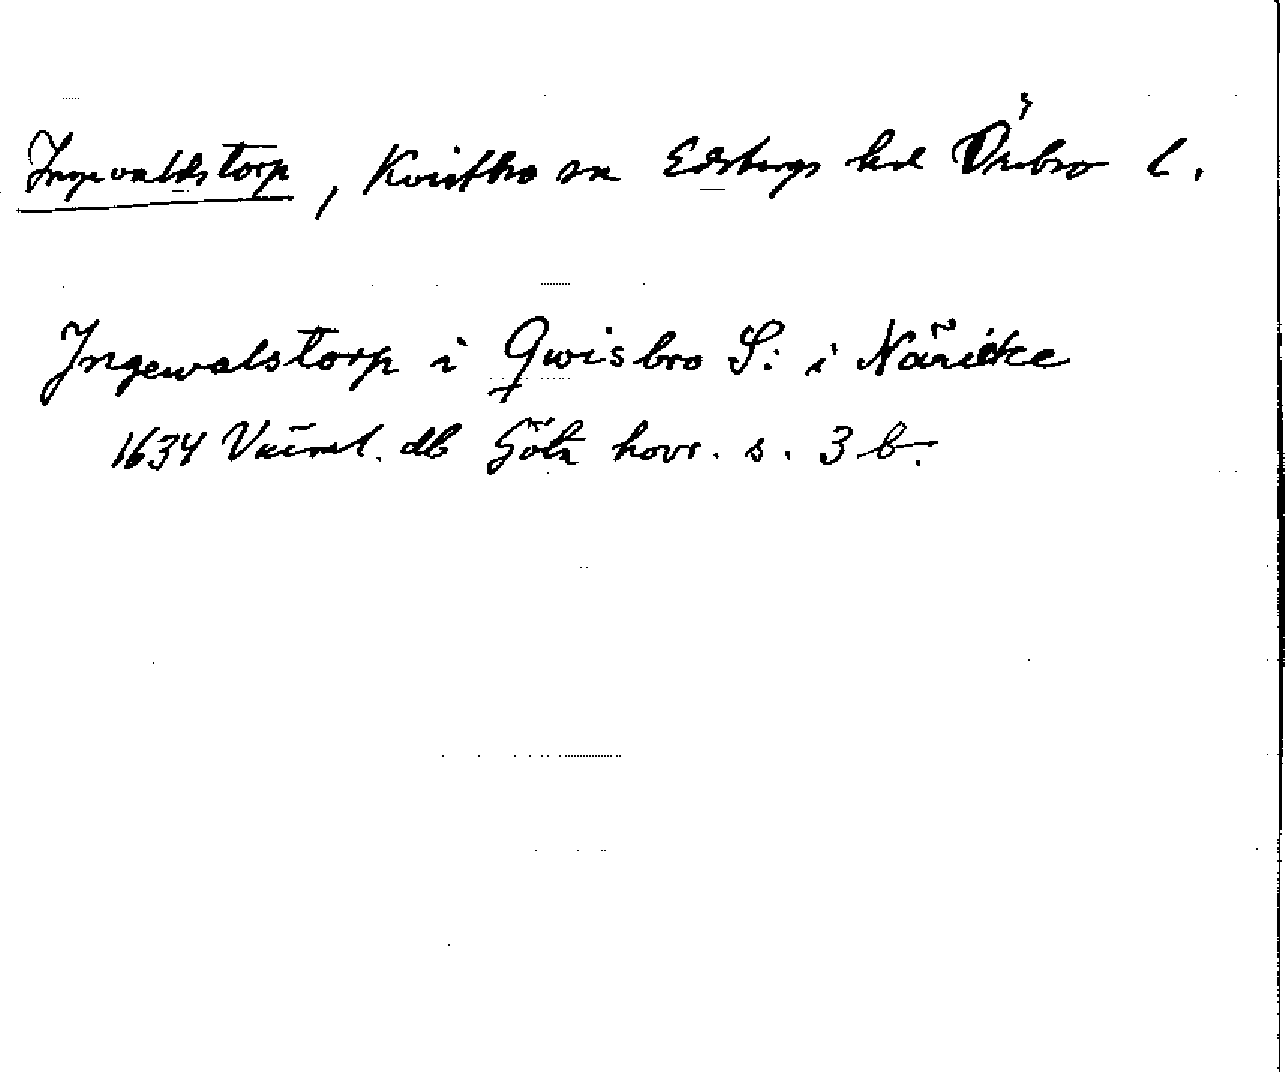 Ingevaldstorp, Kvistbro sn Edsbergs hd Örebro l.
Ingewalstorp i Qwisbro S: i Näricke
1634 Värml. db Göta hovr. s. 3 b.